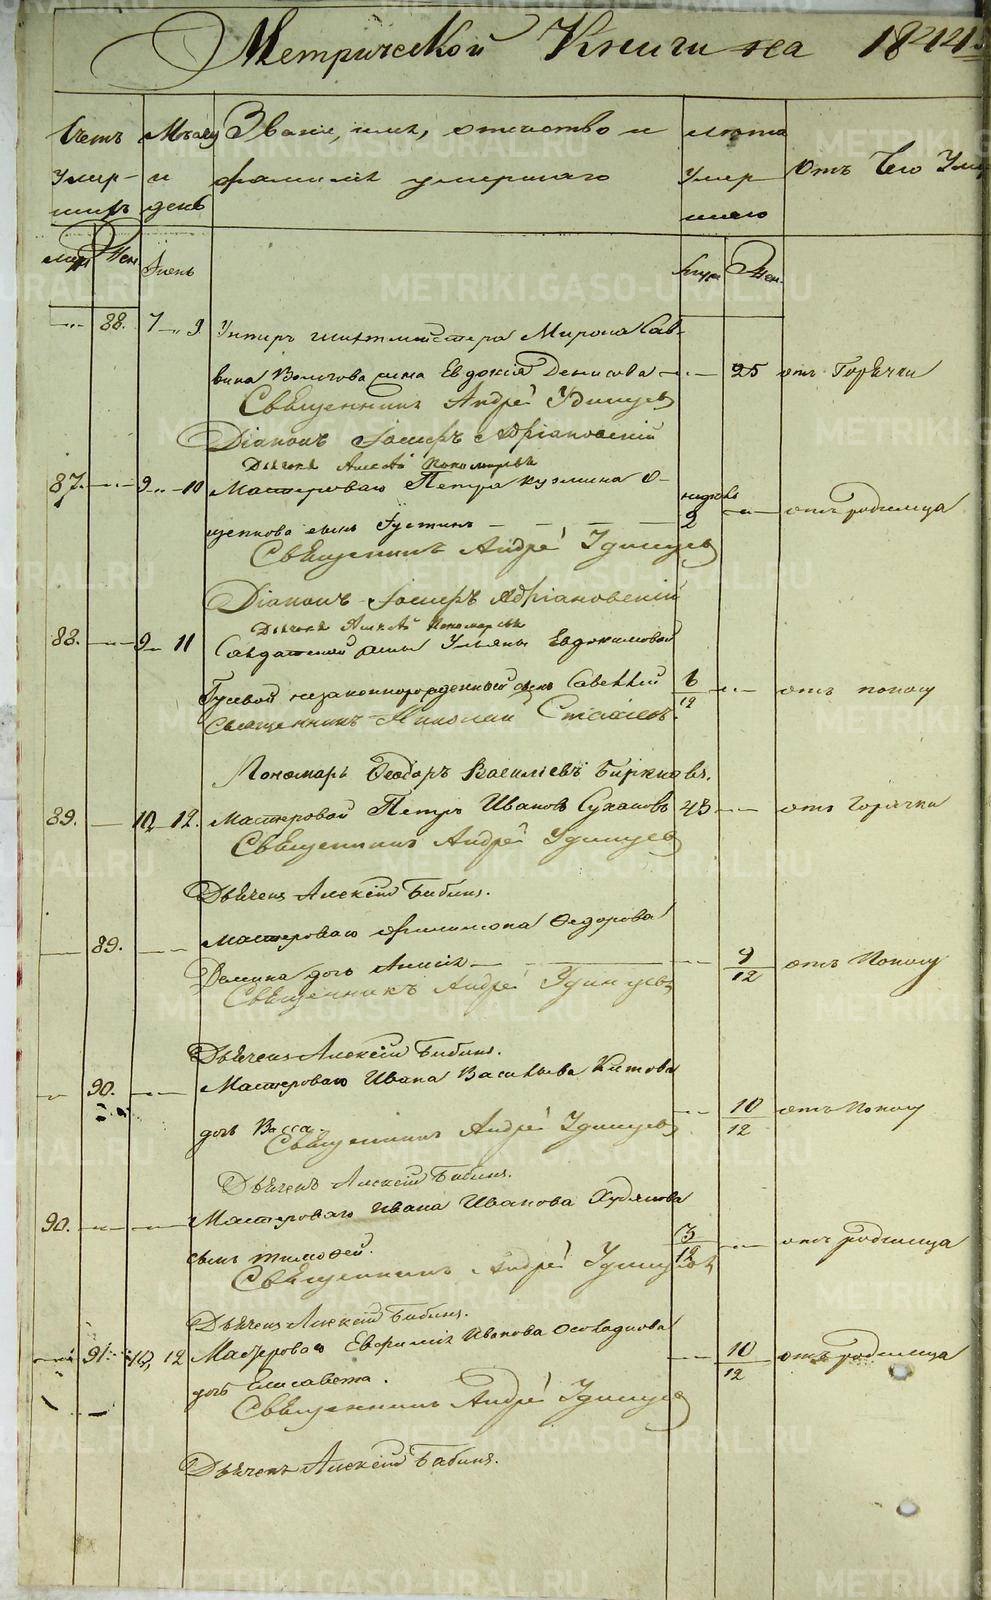 Метрической Книги на 1844
Счетъ Умершихъ
Мѣсяцъ и день
Званiе, имя, отчество и фамилiя умершаго
лета Умершаго
Отъ Чего Умер
муж жен
Iюнь
муж жен
88. 7 9 Унтеръ шихтмейстера Мирона Сав-
вина жена Евдокiя Денисова 25 отъ Горячки
Священникъ Андрей Удинцевъ
Дiаконъ Iосифъ Адрiановскiй
Дьячекъ Алексѣй Пономаревъ
87. 9 10 Мастероваго Петра Кузмина О-
щепкова сынъ Густинъ недѣль 2 отъ родимца
Священникъ Андрей Удинцевъ
Дiаконъ Iосифъ Адрiановскiй
Дьячекъ Алексѣй Пономаревъ
88. 9 11 Солдатской жены Ульяны Евдокимовой
Гусевой незаконнорожденный сынъ Савватiй 6/12 отъ поносу
Священникъ Николай Стахiевъ.
Пономарь Ѳеодоръ Васильевъ Бирюковъ.
89. 10 12. Мастеровой Петръ Ивановъ Сухановъ 43 отъ Горячки
Священникъ Андрей Удинцевъ
Дьячекъ Алексiй Бабинъ.
89. Мастероваго Филимона Федорова
дочь 9/12 отъ Поносу
Священникъ Андрей Удинцевъ
Дьячекъ Алексiй Бабинъ.
90. Мастероваго Ивана Васильева Китова
дочь Васса 10/12 отъ Поносу
Священникъ Андрей Удинцевъ
Дьячекъ Алексiй Бабинъ.
90. Мастероваго Ивана Иванова Худякова
сынъ Тимофей. 3/12 отъ родимца
Священникъ Андрей Удинцевъ
Дьячекъ Алексiй Бабинъ.
91. 10, 12 Мастероваго Евфимiя Иванова
дочь Елисавета. 10/12 отъ родимца
Священникъ Андрей Удинцевъ
Дьячекъ Алексiй Бабинъ.
METRIKI.GASO-URAL.RU